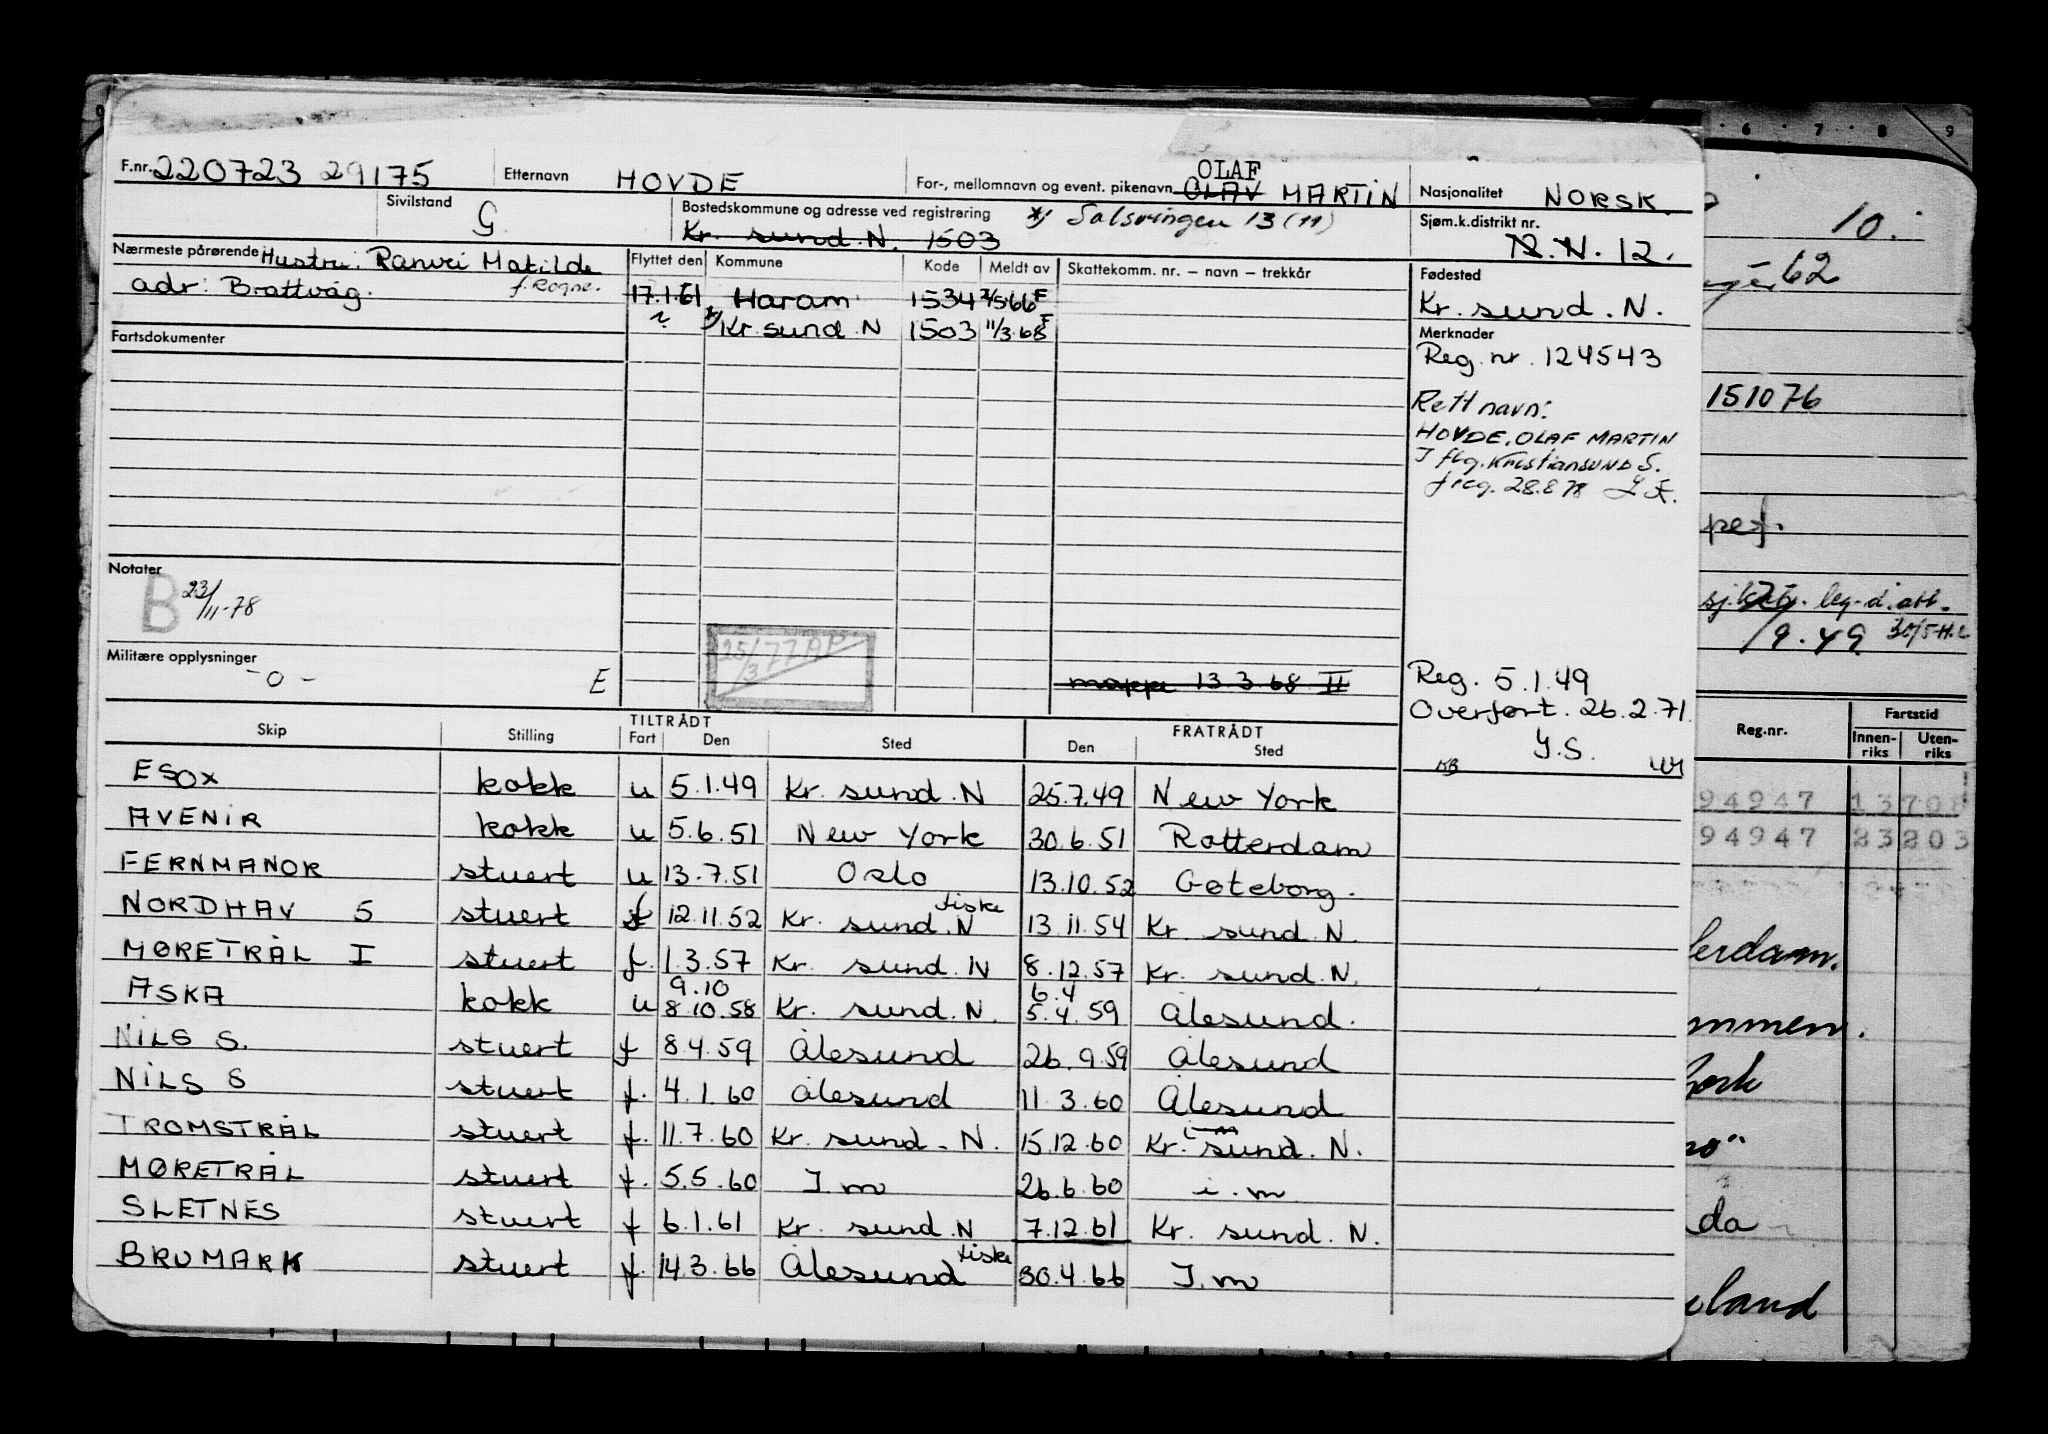 F.nr. 220723 29175 Etternavn HOVDE For-, mellomnavn og event. pikenavn OLAF OLAV MARTIN Nasjonalitet NORSK.
Sivilstand G. Bostedskommune og adresse ved registrering Kr. sund. N. 1503 x) Salsvingen 13 (11) Sjøm.k.distrikt nr. 12.
Nærmeste pårørende Hustru: Ranvei Matilde
f. Rogne.
adr: Brattvåg.
Flyttet den Kommune Kode Meldt av Skattekomm. nr. – navn – trekkår
17.1.61 Haram 1534 2/5.66 F
x) Kr. sund. N 1503 11/3.68 F
Fødested
Kr. sund. N.
Fartsdokumenter
Merknader
Reg. nr. 124543
Rett navn:
HOVDE, OLAF MARTIN
I flg. KristiansUND S.
freg. 28.8 78
Notater
B 23/11-78
25/3 77
Militære opplysninger
- 0 - E
mappe 13.3.68 II
Reg. 5.1.49
Overført. 26.2.71.
Y.S.
KB
Skip Stilling TILTRÅDT Fart Den Sted FRATRÅDT Den Sted
ESOX kokk u 5.1.49 Kr. sund. N 25.7.49 New York
AVENIR kokk u 5.6.51 New York 30.6.51 Rotterdam
FERNMANOR stuert u 13.7.51 Oslo 13.10.52 Gøteborg.
NORDHAV 5 stuert f 12.11.52 Kr. sund. N fiske 13.11.54 Kr. sund. N.
MØRETRÅL I stuert f. 1.3.57 Kr. sund. N 8.12.57 Kr. sund. N.
9.10 6.4
ASKA kokk u 8.10.58 Kr. sund. N. 5.4.59 Ålesund.
NILS S. stuert f 8.4.59 Ålesund 26.9.59 Ålesund
NILS S stuert f. 4.1.60 Ålesund 11.3.60 Ålesund
TROMSTRÅL stuert f. 11.7.60 Kr. sund. N. 15.12.60 Kr. sund. N.
MØRETRÅL stuert f. 5.5.60 I.m 26.6.60 i.m
SLETNES stuert f 6.1.61 Kr. sund. N 7.12.61 Kr. sund. N.
BRUMARK stuert f. 14.3.66 Ålesund fiske 30.4.66 I.m
6 7 8 9
10.
62
151076
leg-d. att.
9.49 30/5-H.L
Reg.nr. Fartstid
Innen-riks Uten-riks
94947 13708
94947 23203
erdam.
mmen.
ork
da
land